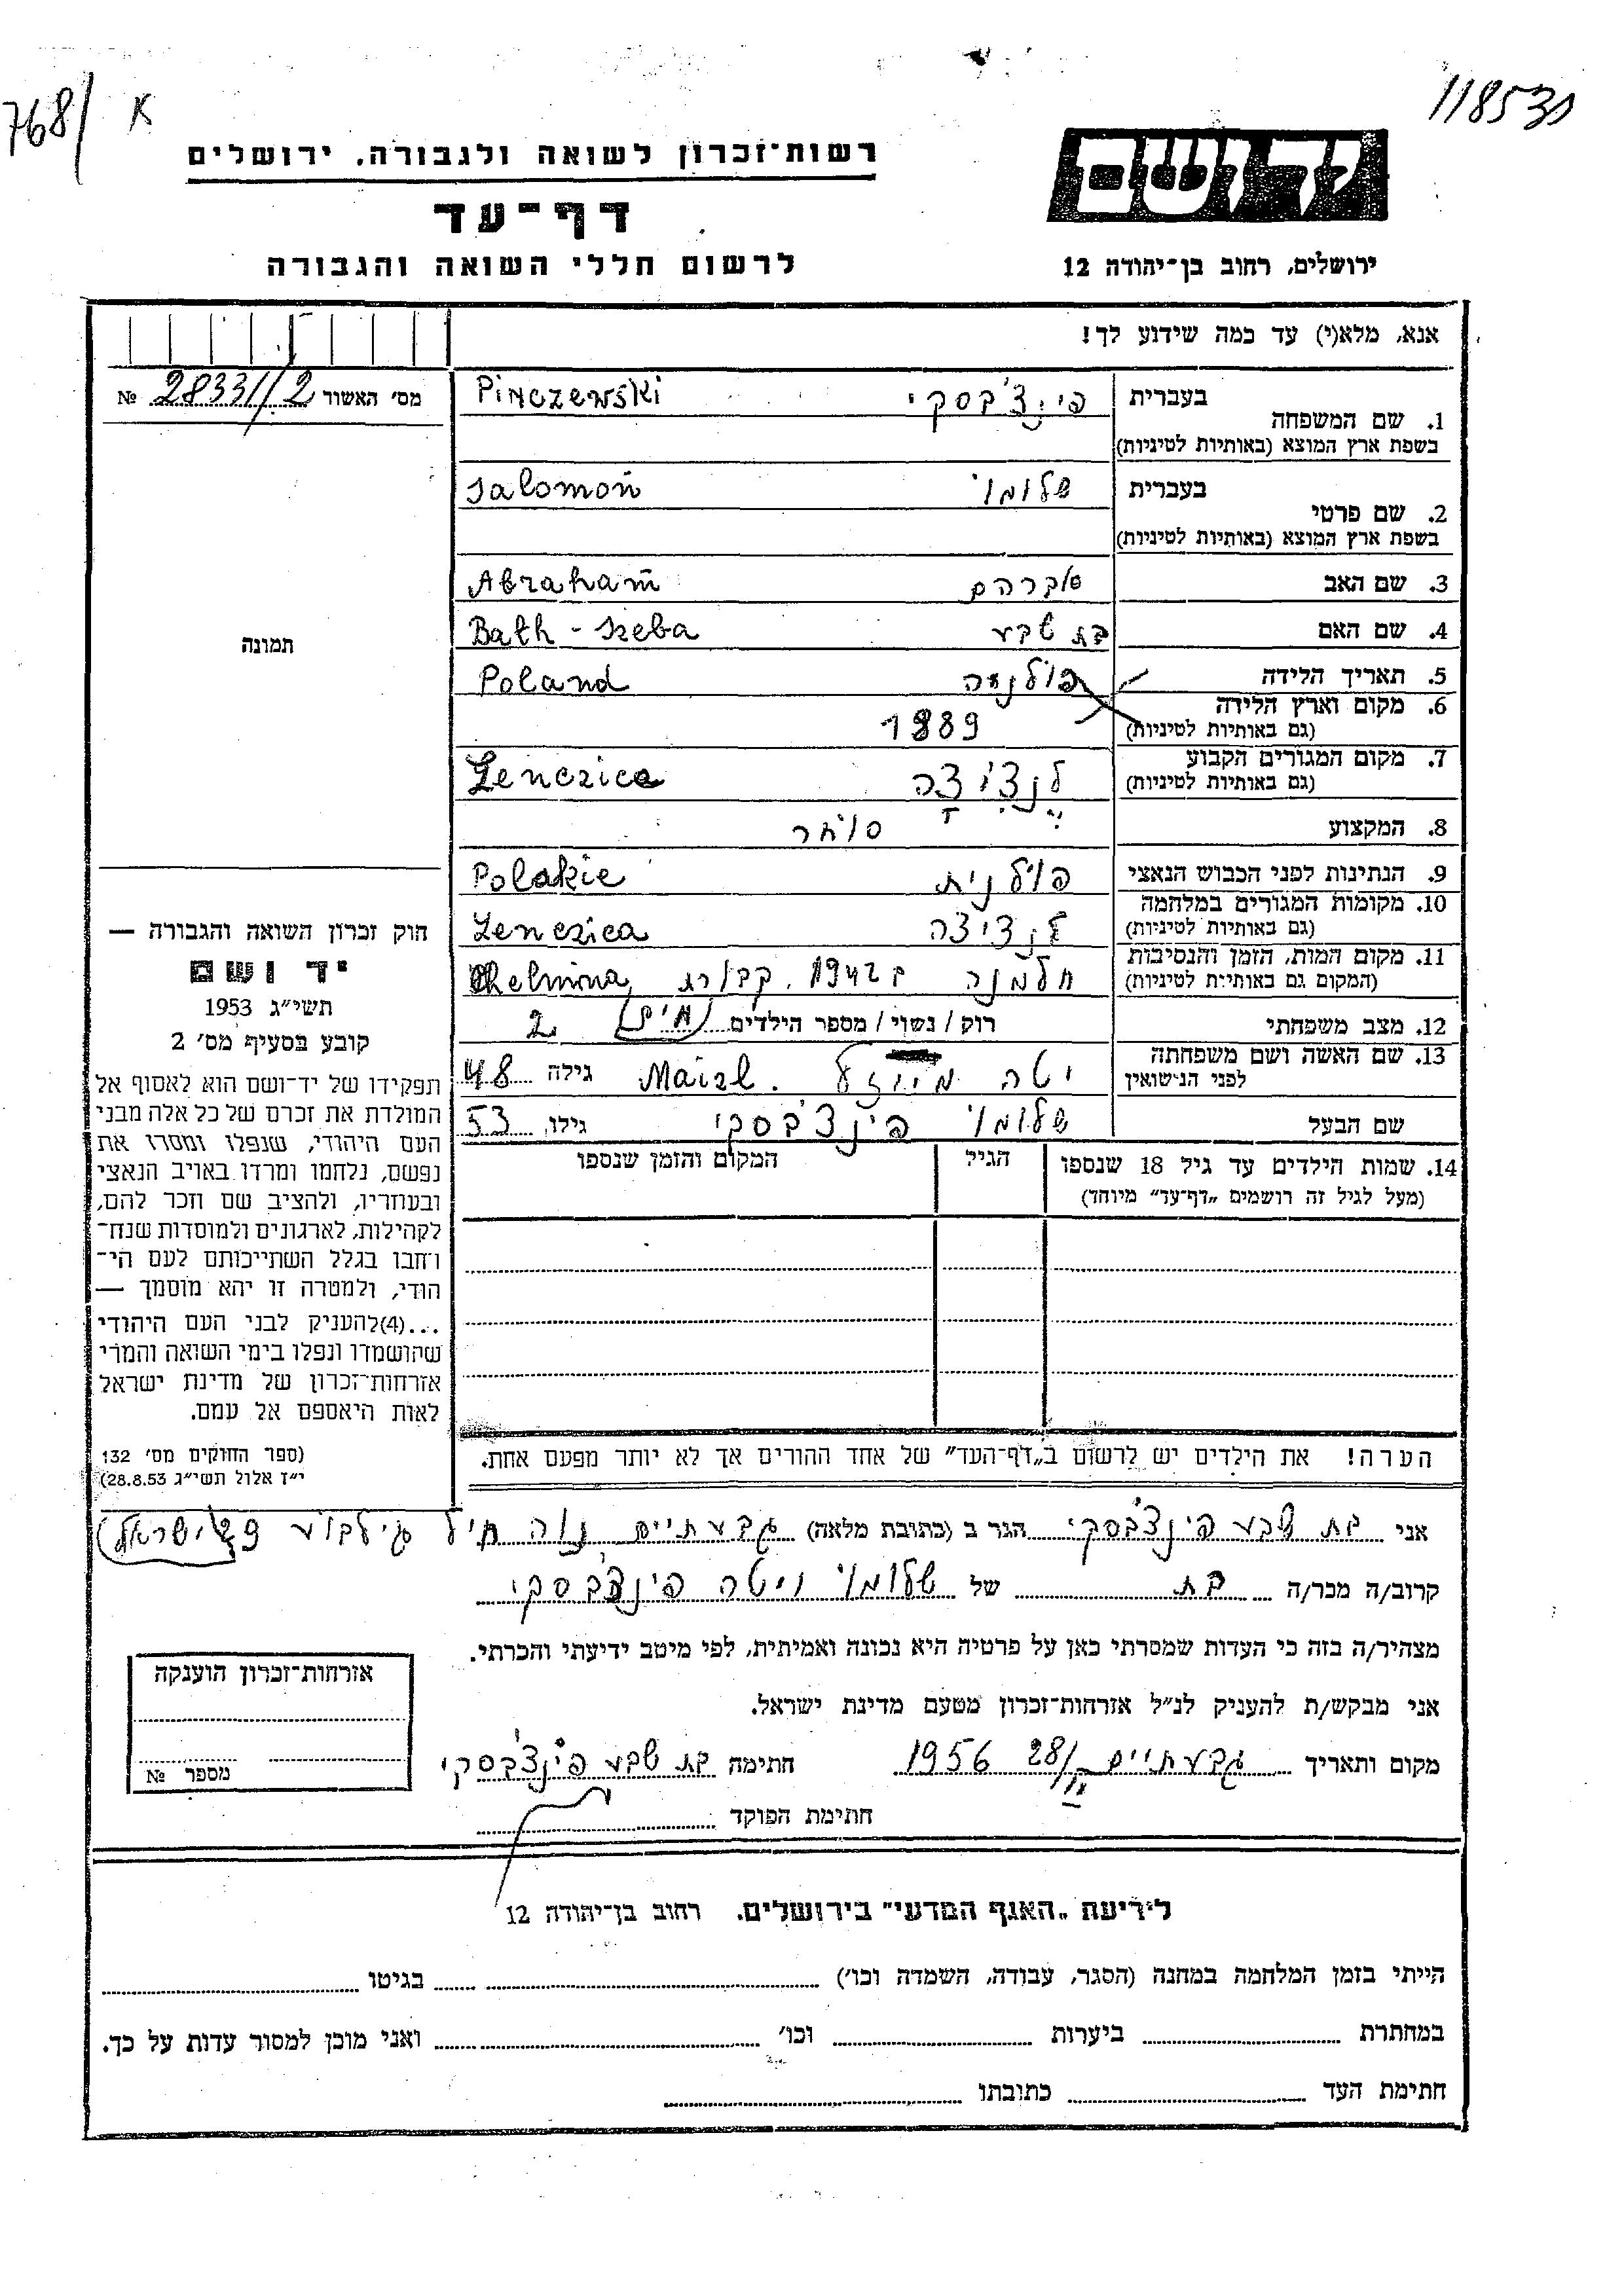 768/ א
118531
יד ושם
רשות־זכרון לשואה ולגבורה, ירושלים
דף־עד
לרשום חללי השואה והגבורה
ירושלים, רחוב בן־יהודה 12
אנא, מלא(י) עד כמה שידוע לך!
מס׳ האשור 28331/2 №
תמונה
1. שם המשפחה בעברית פינצ'בסקי Pinczewski
בשפת ארץ המוצא (באותיות לטיניות)
2. שם פרטי בעברית שלומו' Salomon
בשפת ארץ המוצא (באותיות לטיניות)
3. שם האב אברהם Abraham
4. שם האם בת שבע Bath - Szeba
5. תאריך הלידה פולניה Poland
6. מקום וארץ הלידה 1889
(גם באותיות לטיניות)
7. מקום המגורים הקבוע לנצ'יצה Lenczica
(גם באותיות לטיניות)
8. המקצוע סוחר
9. הנתינות לפני הכבוש הנאצי פולנית Polakie
10. מקומות המגורים במלחמה לנציצה Lenczica
(גם באותיות לטיניות)
11. מקום המות, הזמן והנסיבות חלמנה ב 1942. Chelmna
(המקום גם באותיות לטיניות)
12. מצב משפחתי רוק / נשוי / מספר הילדים 2
13. שם האשה ושם משפחתה יטה מיוזל Maizl. גילה 48
לפני הנישואין
שם הבעל שלומו' פינצ'בסקי גילו, 53
14. שמות הילדים עד גיל 18 שנספו הגיל המקום והזמן שנספו
(מעל לגיל זה רושמים „דף־עד” מיוחד)
הערה! את הילדים יש לרשום ב„דף־העד” של אחד ההורים אך לא יותר מפעם אחת.
חוק זכרון השואה והגבורה —
יד ושם
תשי״ג 1953
קובע בסעיף מס׳ 2
תפקידו של יד־ושם הוא לאסוף אל
המולדת את זכרם של כל אלה מבני
העם היהודי, שנפלו ומסרו את
נפשם, נלחמו ומרדו באויב הנאצי
ובעוזריו, ולהציב שם וזכר להם,
לקהילות, לארגונים ולמוסדות שנח־
רבו בגלל השתייכותם לעם הי־
הודי, ולמטרה זו יהא מוסמך —
...(4)להעניק לבני העם היהודי
שהושמדו ונפלו בימי השואה והמרי
אזרחות־זכרון של מדינת ישראל
לאות היאספם אל עמם.
(ספר החוקים מס׳ 132
י״ז אלול תשי״ג 28.8.53)
אני בת שבע פינצ'בסקי הגר ב (כתובת מלאה) גבעתיים נוה חיל גילבוע ישראל
קרוב/ה מכר/ה בת של שלומו' ויטה פינצ'בסקי
מצהיר/ה בזה כי העדות שמסרתי כאן על פרטיה היא נכונה ואמיתית, לפי מיטב ידיעתי והכרתי.
אני מבקש/ת להעניק לנ״ל אזרחות־זכרון מטעם מדינת ישראל.
מקום ותאריך גבעתיים 28/ 1956 חתימה בת שבע פינצ'בסקי
חתימת הפוקד
אזרחות־זכרון הוענקה
מספר №
לידיעת „האגף המדעי” בירושלים. רחוב בן־יהודה 12
הייתי בזמן המלחמה במחנה (הסגר, עבודה, השמדה וכו׳) בגיטו
במחתרת ביערות וכו׳ ואני מוכן למסור עדות על כך.
חתימת העד כתובתו